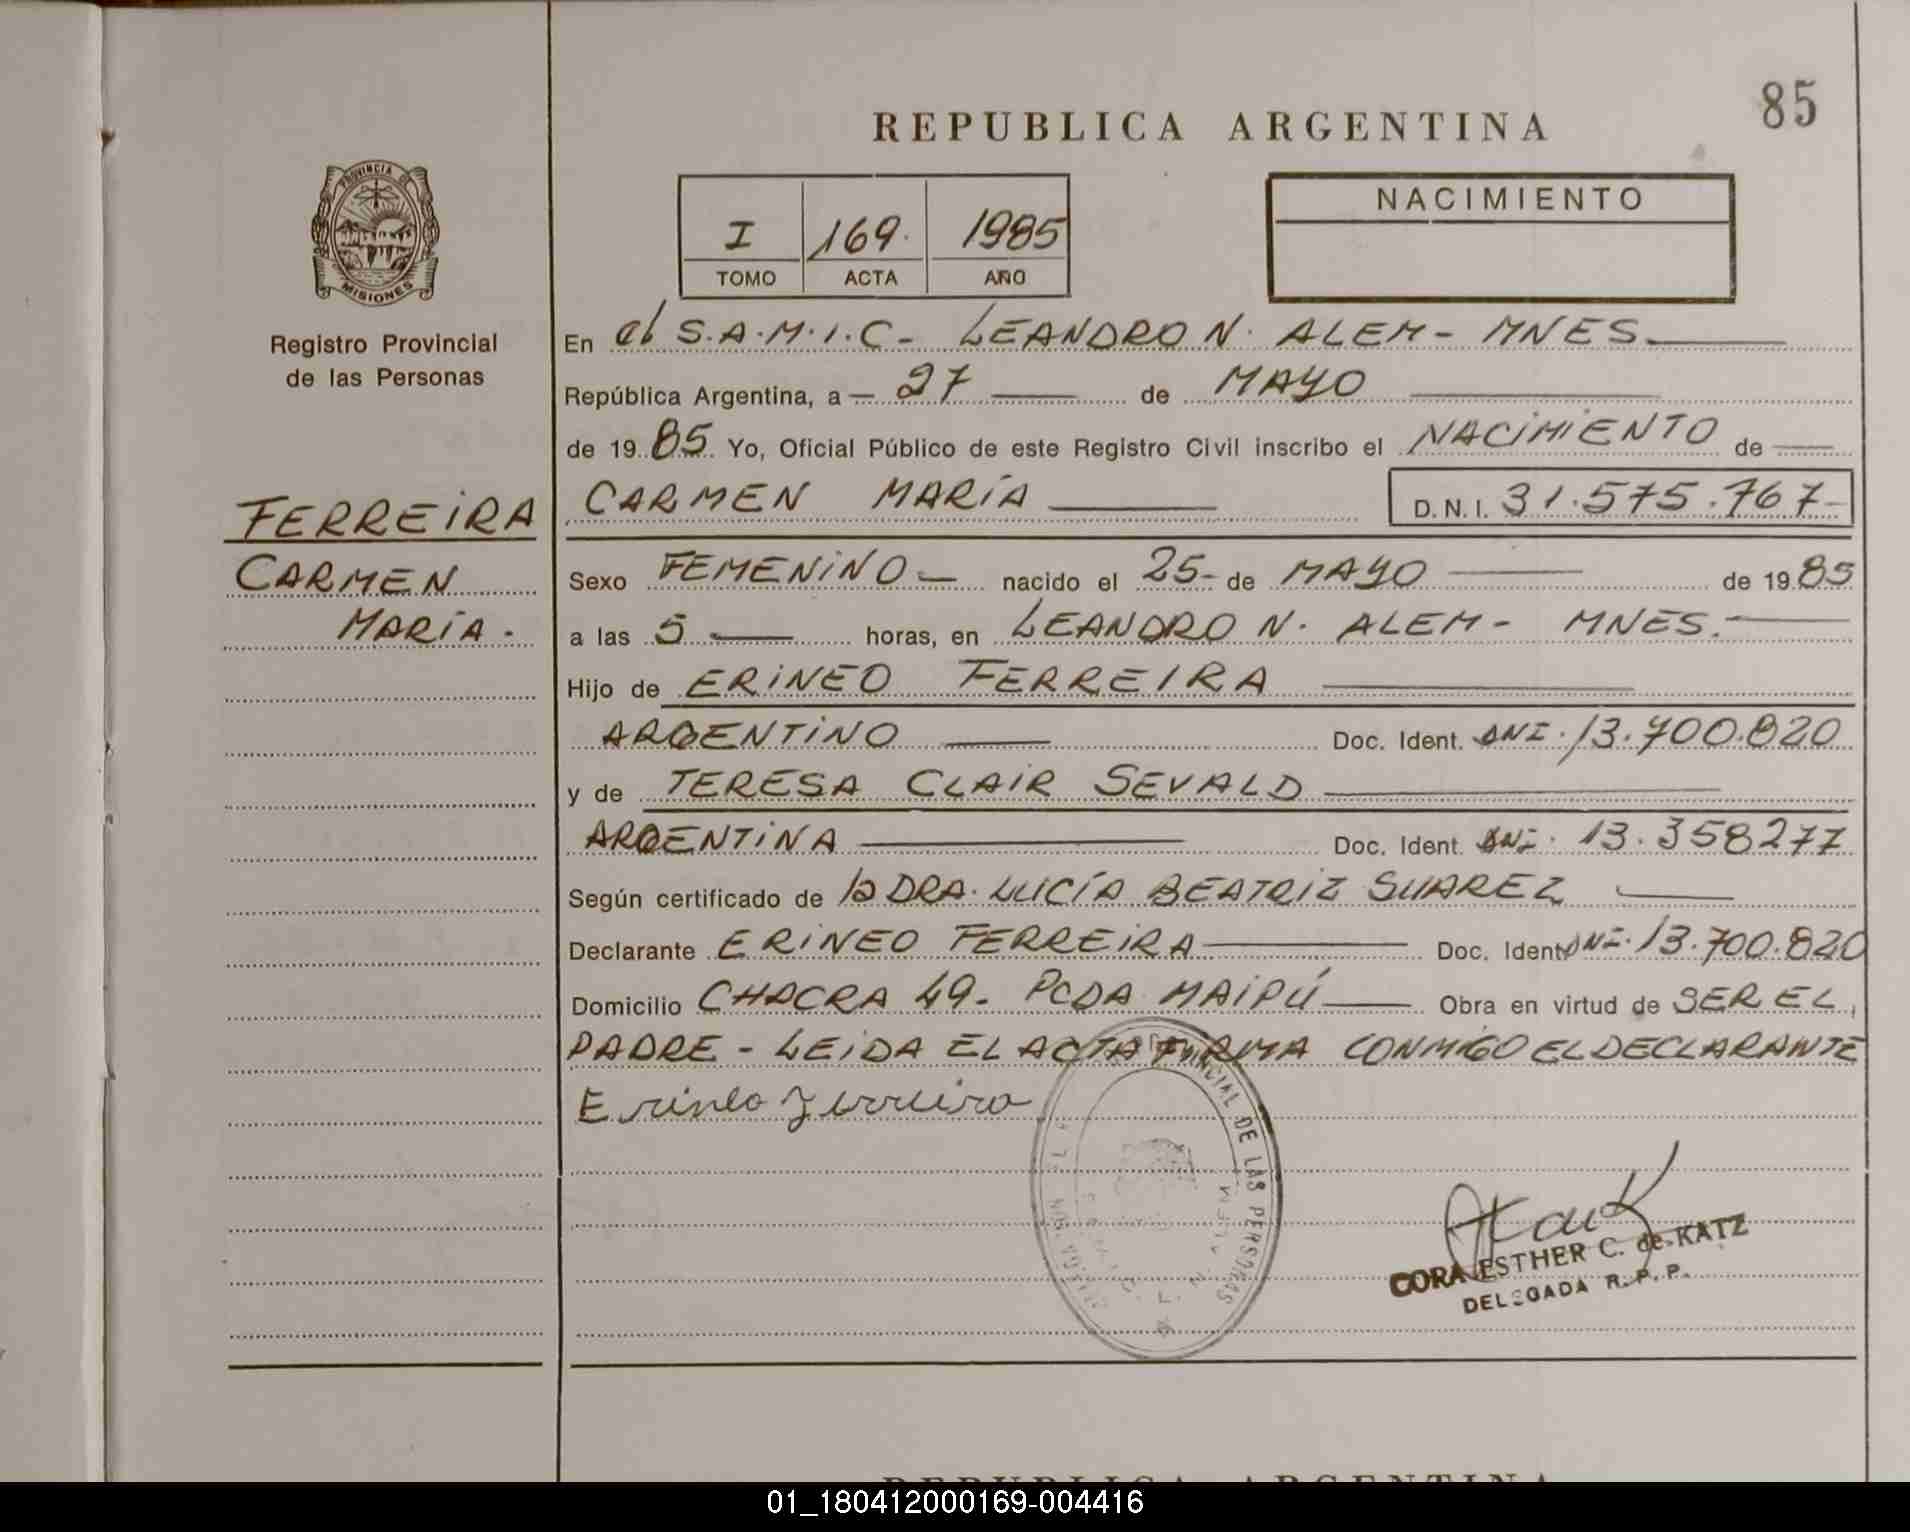 85
REPUBLICA ARGENTINA
PROVINCIA DE
MISIONES
Registro Provincial
de las Personas
I 169 1985
TOMO ACTA AÑO
NACIMIENTO
En el S.A.M.I.C - LEANDRO N. ALEM - MNES.
República Argentina, a - 27 de MAYO
de 19 85 Yo, Oficial Público de este Registro Civil inscribo el NACIMIENTO de
CARMEN MARÍA D.N.I. 31.575.767
FERREIRA
CARMEN
MARÍA.
Sexo FEMENINO - nacido el 25 - de MAYO de 19 85
a las 5 horas, en LEANDRO N. ALEM - MNES.
Hijo de ERINEO FERREIRA
ARGENTINO Doc. Ident. DNI. 13.700.820
y de TERESA CLAIR SEVALD
ARGENTINA Doc. Ident. DNI. 13.358277
Según certificado de la DRA. LUCÍA BEATRIZ SUAREZ
Declarante ERINEO FERREIRA Doc. Ident DNI. 13.700.820
Domicilio CHACRA 49 - PCDA MAIPÚ Obra en virtud de SER EL
PADRE - LEIDA EL ACTA FIRMA CONMIGO EL DECLARANTE
Erineo Ferreira
DE LAS PERSONAS
CORA ESTHER C. de KATZ
DELEGADA R.P.P.
REPUBLICA ARGENTINA
01_180412000169-004416